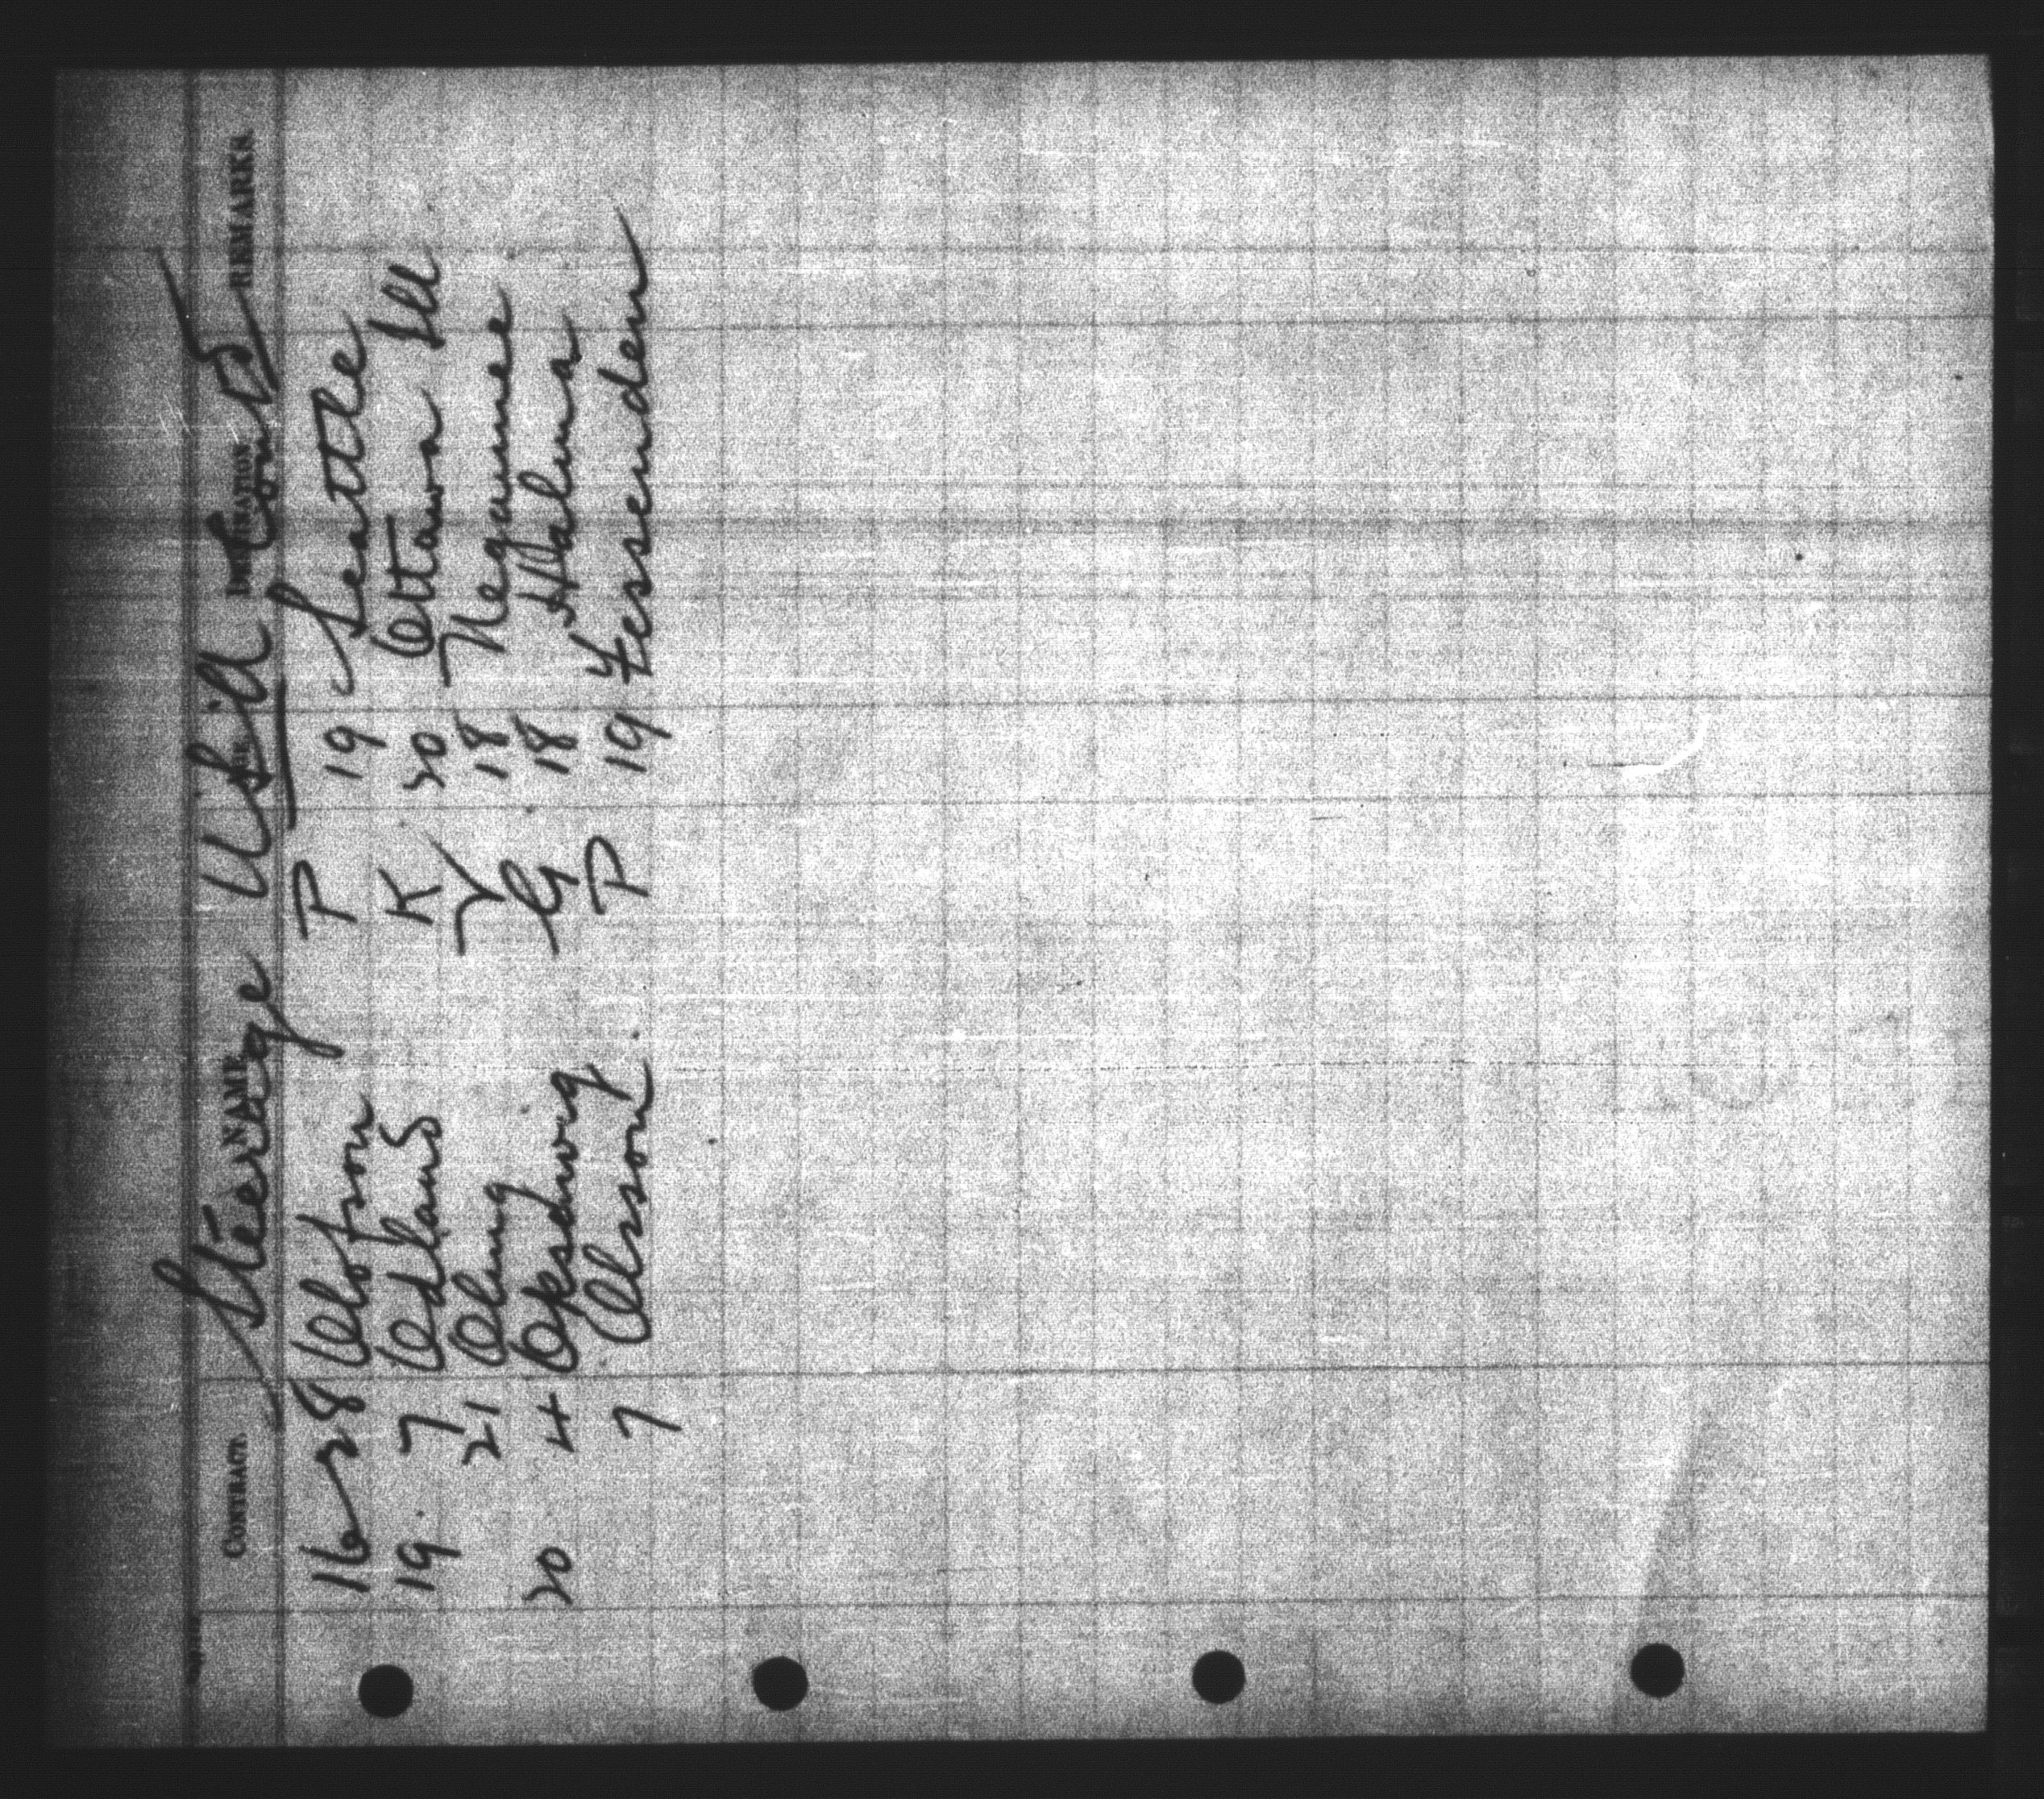 Steerage
CONTRACT. NAME AGE DESTINATION REMARKS.
16 28 Olofson P 19 Seattle
19 7 Odland K 20 Ottawa Ill
21 Olung V 18 Negaunee
20 4 Opsdwig G 18 Halma
7 Olsson P 19 Fessenden